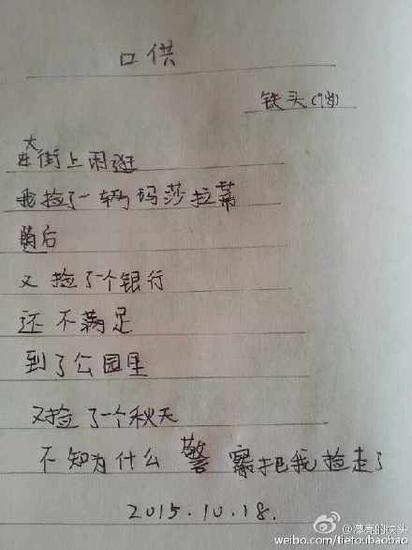 口供
铁头(9岁)
在大街上闲逛
我捡了一辆玛莎拉蒂
随后
又捡了个银行
还不满足
到了公园里
又捡了一个秋天
不知为什么警察把我捡走了
2015.10.18.
@漂亮的铁头
weibo.com/tietoubaobao